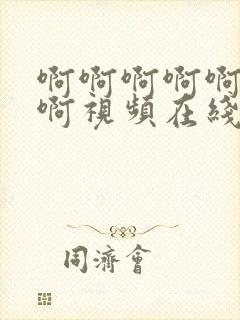 啊啊啊啊啊
啊視頻在綫
同濟會